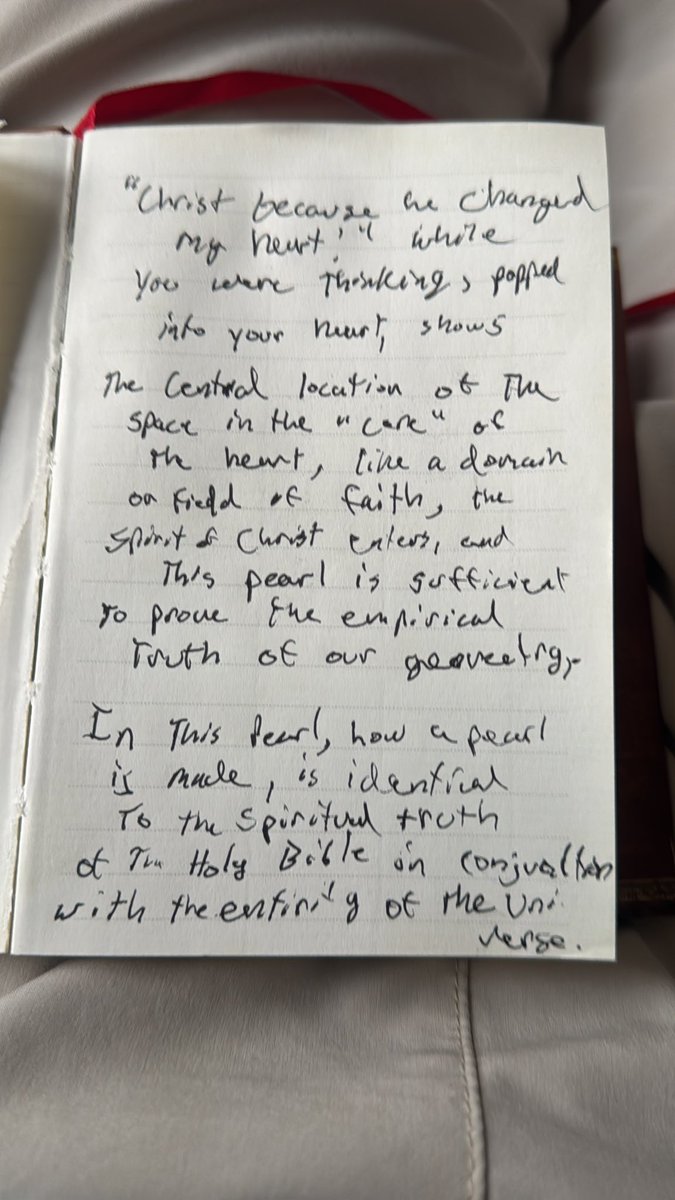 "Christ because he changed
my heart!" while
you were thinking, popped
into your heart, shows
The Central location of The
space in the "core" of
the heart, like a domain
or field of faith, the
spirit of Christ enters, and
This pearl is sufficient
to prove the empirical
Truth of our geometry,
In This Pearl, how a pearl
is made, is identical
To the spiritual truth
of The Holy Bible in
with the entirity of the Uni
verse.